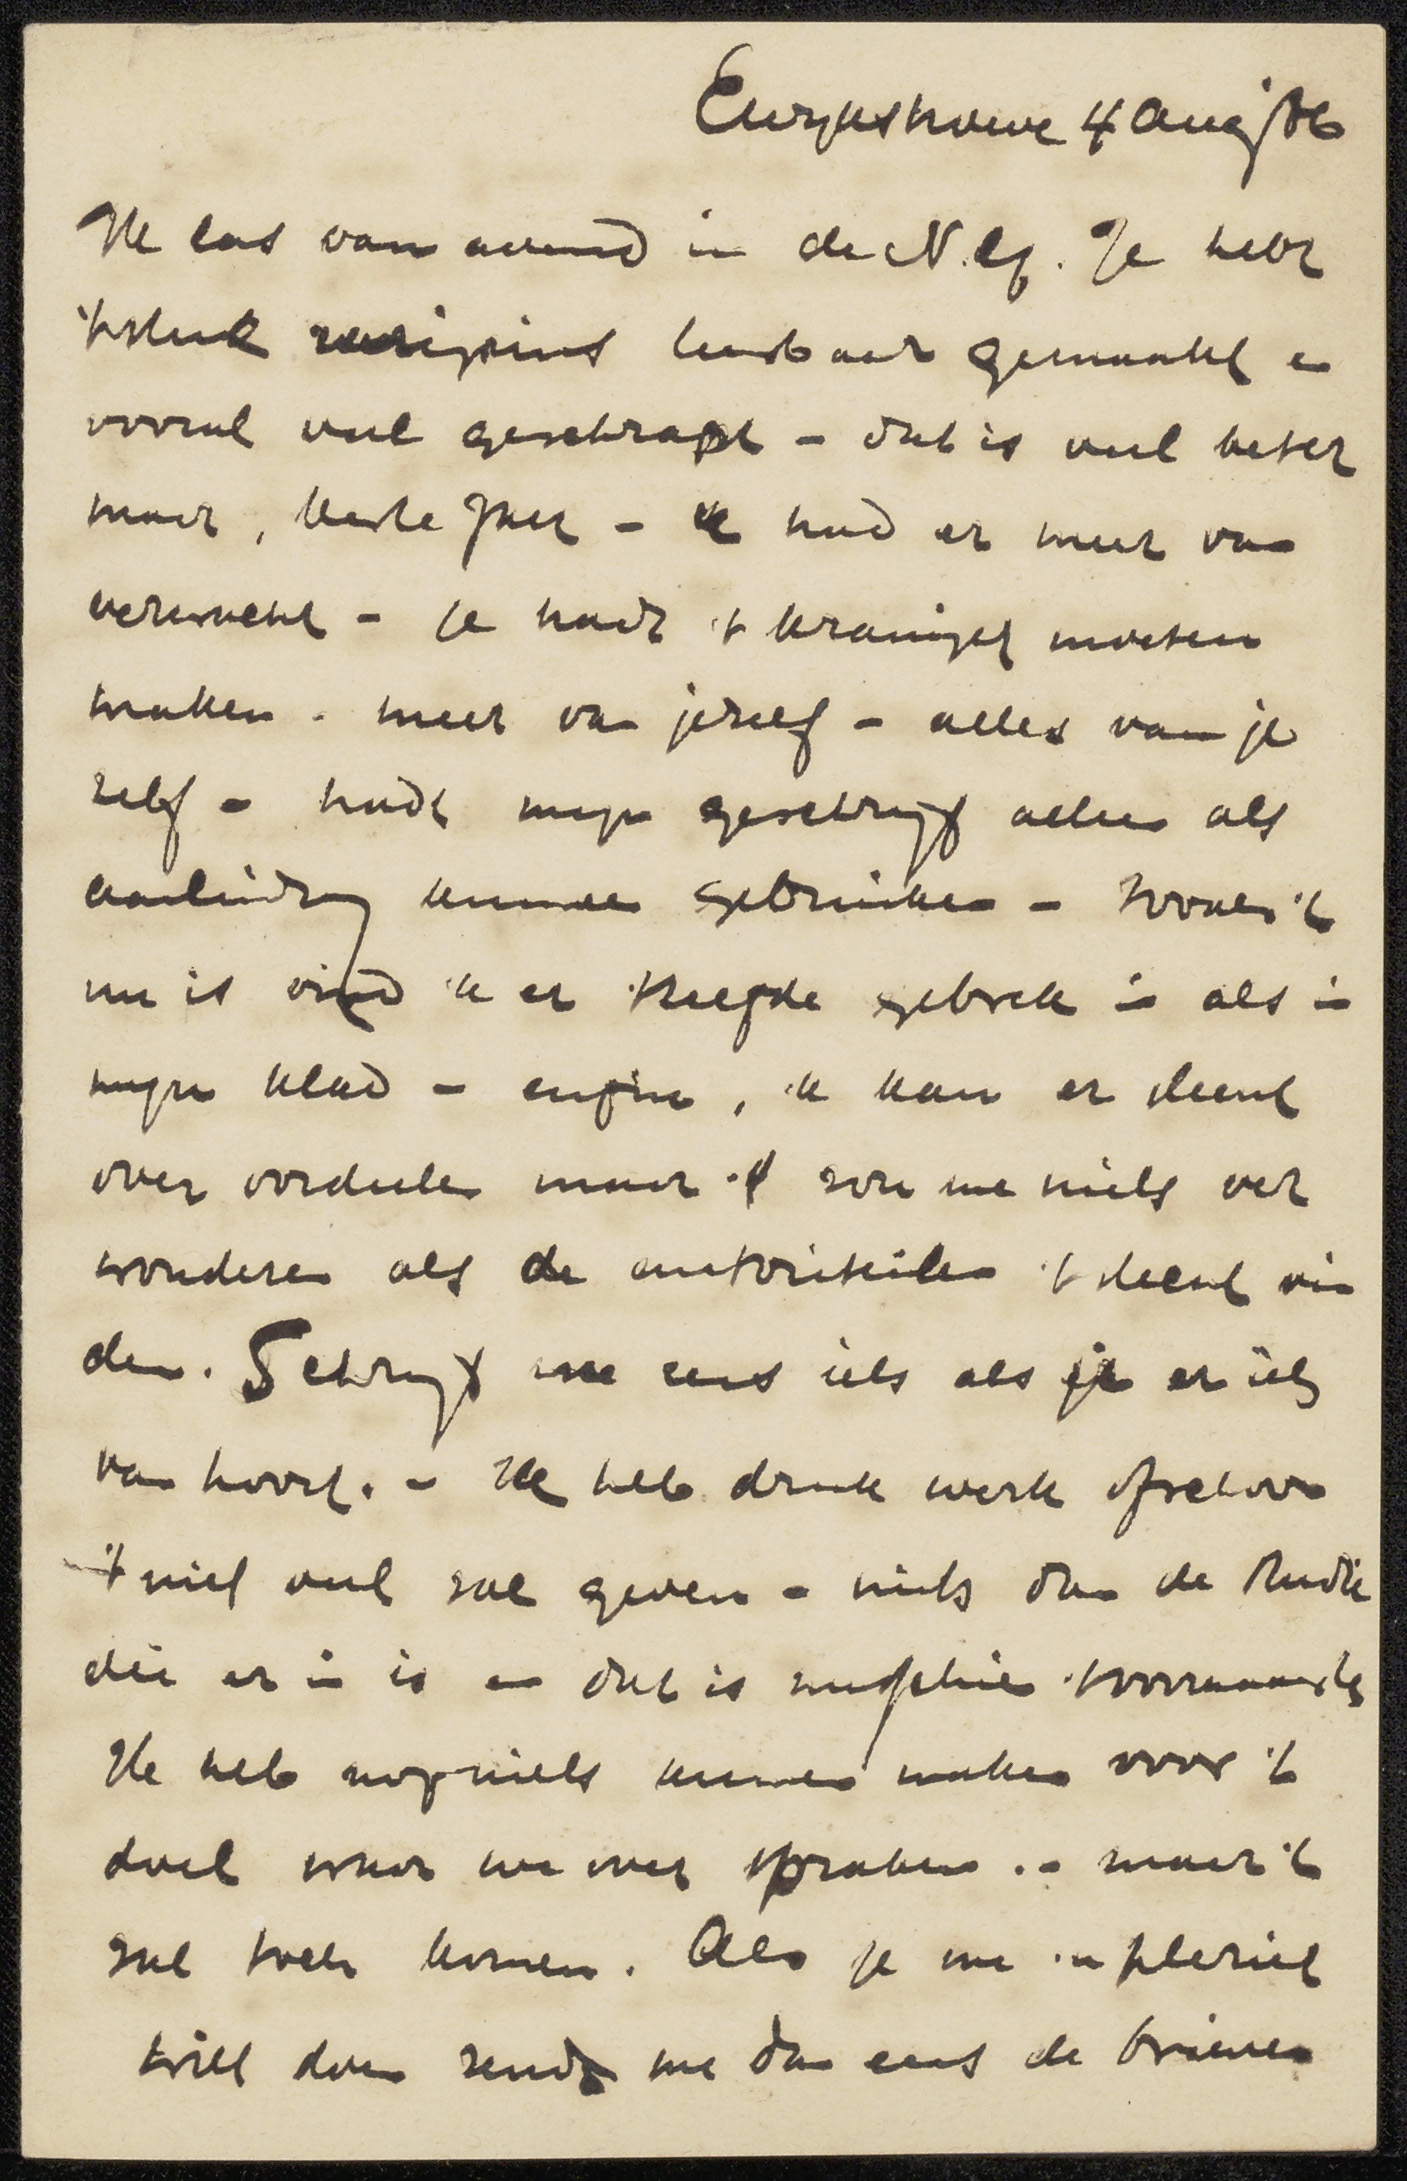 Ewijkshoeve 4 Aug/86
Ik las van avond in de N.Eg. Je hebt
't stuk eenigzins leesbaar gemaakt en
vooral veel geschrapt - dat is veel beter
maar, beste Jan - ik had er meer van
verwacht - je hadt 't kraniger moeten
maken. meer van jezelf - alles van je
zelf - hadt mijn geschrijf alleen als
aanleiding kunnen gebruiken - zooals 't
nu is vind ik er 't zelfde gebrek in als in
mijn klad - enfin, ik kan er slecht
over oordeelen maar 't zou me niets ver
wonderen als de autoriteiten 't slecht vin
den. Schrijf me eens iets als je er iets
van hoort. - Ik heb druk werk ofschoon
't niet veel zal geven - niets dan de studie
die er in is en dat is misschien 't voornaamste
Ik heb nog niets kunnen maken voor 't
doel waar we over spraken. - maar 't
zal toch komen. Als je me 'n pleziet
wilt doen zendt me dan eens de brieven